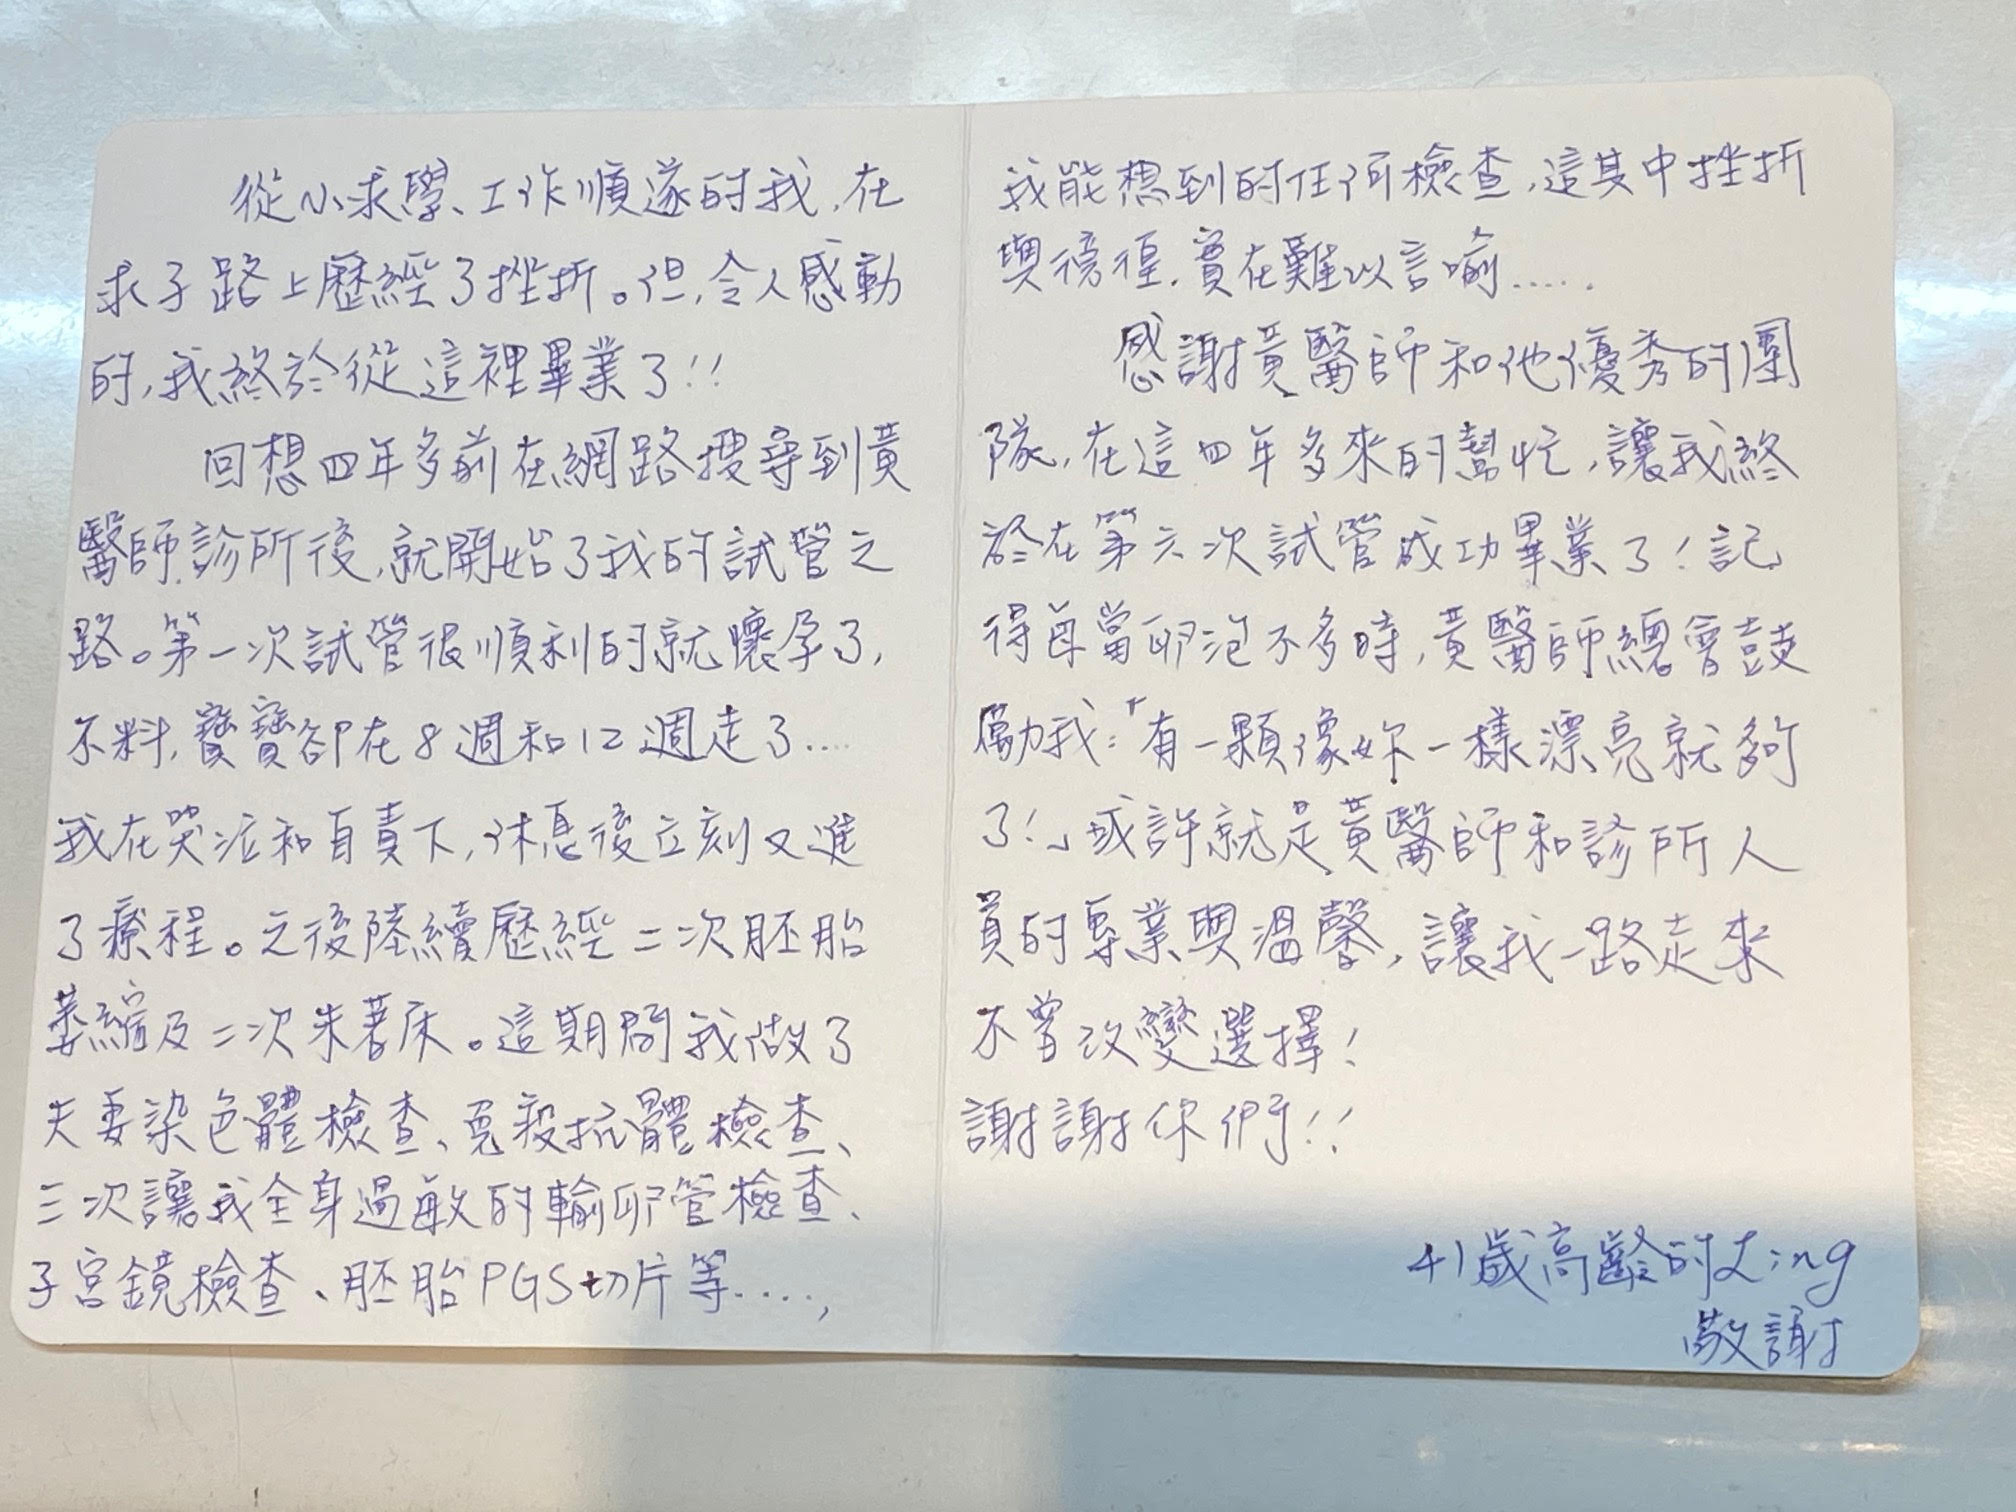 從小求學、工作順遂的我,在
求子路上歷經了挫折。但,令人感動
的,我終於從這裡畢業了!!
回想四年多前在網路搜尋到黃
醫師診所後,就開始了我的試管之
路。第一次試管很順利的就懷孕了,
不料,寶寶卻在8週和12週走了....
我在哭泣和自責下,休息後立刻又進
了療程。之後陸續歷經二次胚胎
萎縮及二次未著床。這期間我做了
夫妻染色體檢查、免疫抗體檢查、
三次讓我全身過敏的輸卵管檢查、
子宮鏡檢查、胚胎PGS切片等....,
我能想到的任何檢查,這其中挫折
與徬徨,實在難以言喻.....
感謝黃醫師和他優秀的團
隊,在這四年多來的幫忙,讓我終
於在第六次試管成功畢業了!記
得每當卵泡不多時,黃醫師總會鼓
勵我:「有一顆像妳一樣漂亮就夠
了!」或許就是黃醫師和診所人
員的專業與溫馨,讓我一路走來
不曾改變選擇!
謝謝你們!!
41歲高齡的ㄤing
敬謝